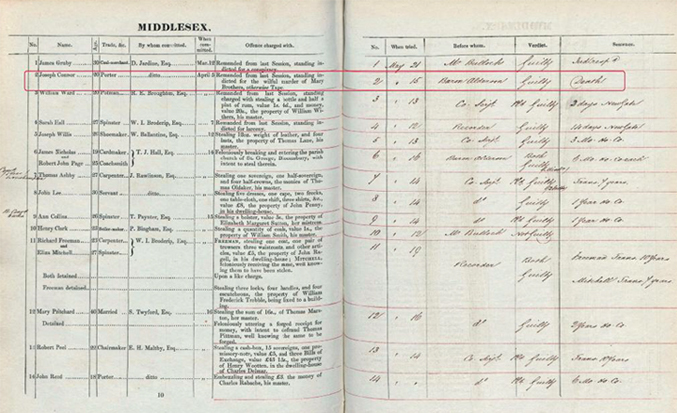 MIDDLESEX.
No. Name. Age Trade, &c. By whom committed. When committed. Offence charged with.
No. When tried. Before whom. Verdict. Sentence.
1 James Graby D. Jardine, Esq. Mar. Remanded from last Session, standing indicted for a conspiracy.
1 May 21 Mr Bullock Guilty
2 Joseph Connor Porter ditto April Remanded from last Session, standing indicted for the wilful murder of Mary Brothers, otherwise Tape.
2 " 16 Baron Alderson Guilty Death
3 William Ward Potman R. E. Broughton, Esq. Remanded from last Session, standing charged with stealing a bottle and half a pint of rum, value 1s. 6d., and money, value 20s., the property of William Withers, his master.
3 " 13 Co. Serjt Guilty 3 days Newgate
4 Sarah Hall Spinster W. J. Broderip, Esq. Remanded from last Session, standing indicted for larceny.
4 " 12 Recorder Guilty 14 days Newgate
5 Joseph Willis Shoemaker W. Ballantine, Esq. Stealing weight of leather, and four bats, the property of Thomas Lane, his master.
5 " 13 Co. Serjt Guilty 3 Mo. Ho Co
6 James Nicholas and Robert John Page Cardmaker Coachsmith T. J. Hall, Esq. Feloniously breaking and entering the parish church of St. George, Bloomsbury, with intent to steal therein.
6 " 16 Baron Alderson Both Guilty 6 Mo. Ho Co each
7 Thomas Ashby Carpenter J. Rawlinson, Esq. Stealing one sovereign, one half-sovereign, and four half-crowns, the monies of Thomas Oldaker, his master.
7 " 14 Co. Serjt Guilty Trans. 7 years
8 Julia Lee Servant ditto Stealing five dresses, one cape, two frocks, one table-cloth, one shift, three shirts, &c., value £8, the property of John Penny, in his dwelling-house.
8 " 14 do Guilty 1 Year Ho Co
9 Ann Collins Spinster T. Paynter, Esq. Stealing a bolster, value 3s., the property of Elizabeth Margaret Sutton, her mistress.
9 " 14 do Guilty 1 Year Ho Co
10 Henry Clark P. Bingham, Esq. Stealing a quantity of coals, value 1s., the property of William Smith, his master.
10 " 12 Mr Bullock Not Guilty
11 Richard Freeman and Ellen Mitchell Carpenter Spinster W. J. Broderip, Esq. FREEMAN, stealing one coat, one pair of trowsers three waistcoats, and other articles, value £5, the property of John Ragell, in his dwelling-house; MITCHELL, feloniously receiving the same, well knowing them to have been stolen.
11 " 19 Recorder Both Guilty Freeman Trans. 10 Years
Mitchell Trans. 7 years
Both detained Upon a like charge.
Freeman detained. Stealing three locks, four handles, and four escutcheons, the property of William Frederick Trebble, being fixed to a building.
12 Mary Pritchard Married S. Twyford, Esq. Stealing the sum of 16s., of Thomas Marston, her master.
12 " 16 do Guilty 2 Years Ho Co
Detained Feloniously uttering a forged receipt for money, with intent to defraud Thomas Pittman, well knowing the same to be forged.
13 Robert Peel Chairmaker E. H. Maltby, Esq. Stealing a cash-box, 15 sovereigns, one promissory-note, value £5, and three Bills of Exchange, value £48 15s., the property of Henry Wootten, in the dwelling-house of Charles Delmar.
13 " 14 Co. Serjt Guilty Trans. 10 Years
14 John Reed Porter ditto Embezzling and stealing £3. the money of Charles Rabache, his master.
14 " " do Guilty 6 Mo. Ho Co
10